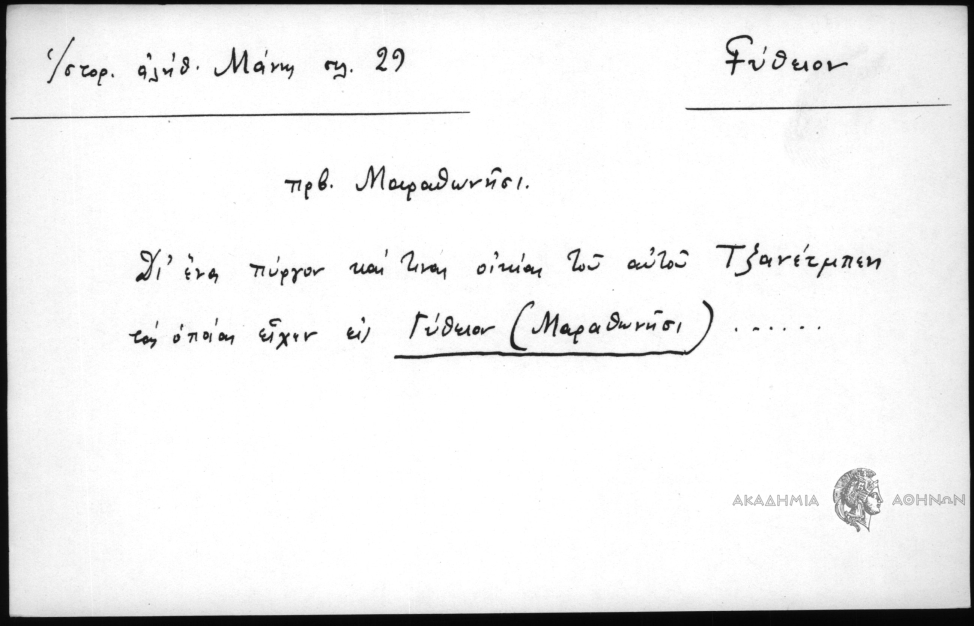 Ἱστορ. ἀλήθ. Μάνης σελ. 29
Γύθειον
πρβ. Μαραθωνῆσι.
Δι' ἕνα πύργον καὶ τινας οἰκίας τοῦ αὐτοῦ Τζανέτμπεη
τὰς ὁποίας εἶχεν εἰς Γύθειον (Μαραθωνῆσι) ......
ΑΚΑΔΗΜΙΑ ΑΘΗΝΩΝ